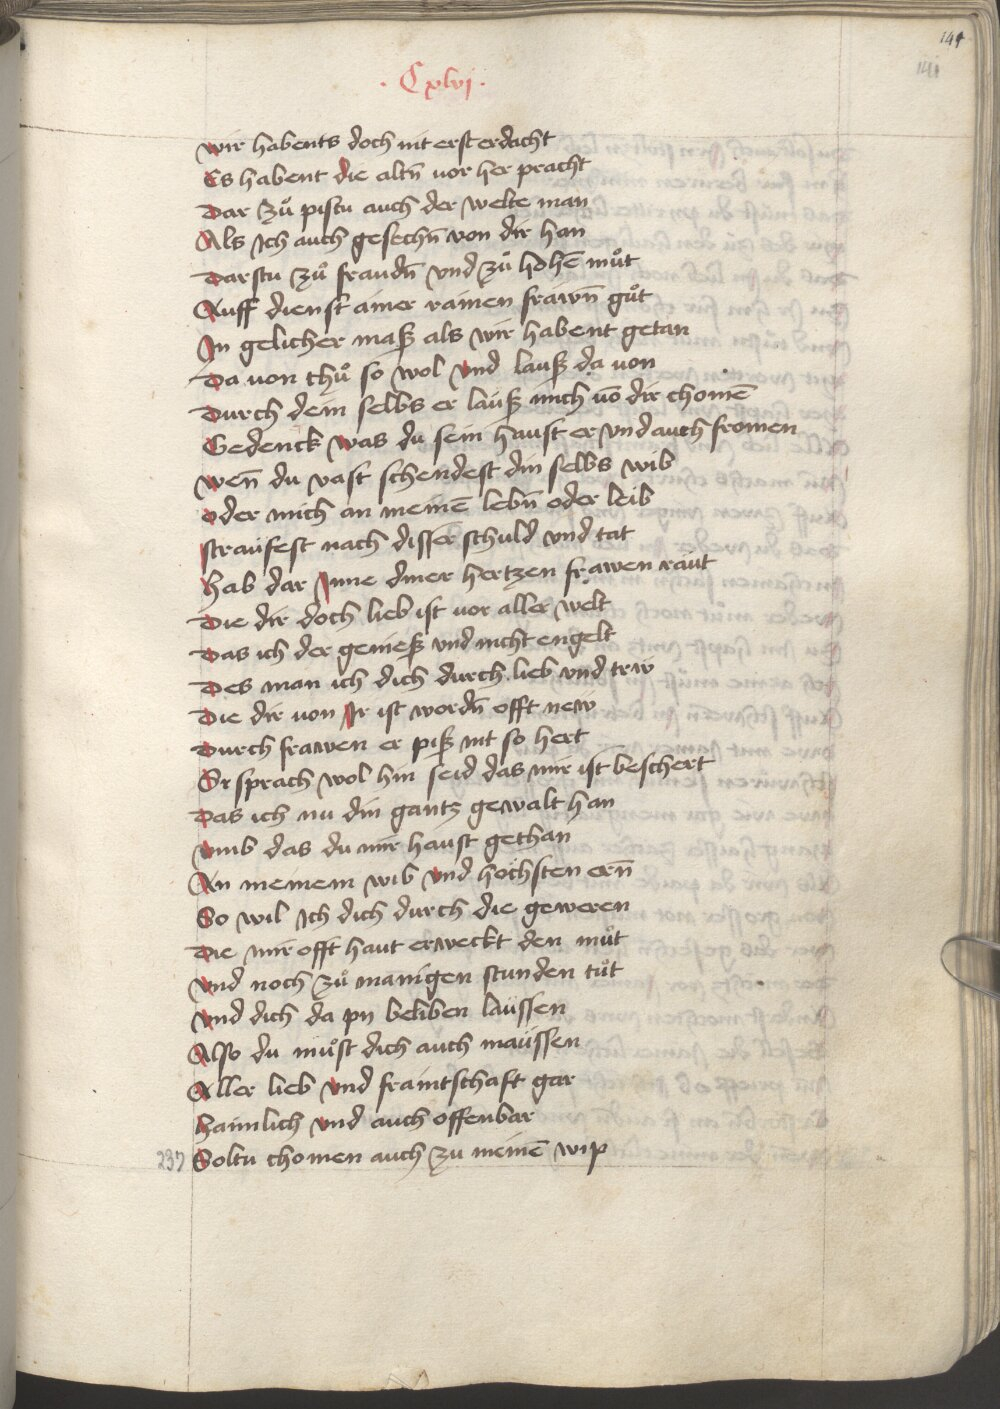 141
141
· Cxlvi ·
wir habents doch nit erst erdacht
Es habent die altn̄ vor her pracht
Dar zuͦ pistu auch der welte man
Als Ich auch gesechn̄ von dir han
Darstu zuͦ fraudn̄ vnd zuͦ hohē muͦt
Auff dienst ainer rainen frawn̄ guͦt
In gelicher maß als wir habent getan
Da von thuͦ so wol vnd lauß da von
Durch dein selbs er lauß mich vō dir chomē
Gedenck was du sein haust er vnd auch fromen
wen̄ du vast schendest din selbs wib
oder mich an meinē lebn̄ oder leib
straufest nach disser schuld vnd tat
hab dar Inne diner hertzen frawen raut
Die dir doch lieb ist vor aller welt
Das ich der genieß vnd nicht engelt
Des man ich dich durch lieb vnd trw
Die dir von Ir ist wordn̄ offt new
Durch frawen er piß nit so hert
Er sprach wol hin seid das mir ist beschert
Das ich nu din gantz gewalt han
vmb das du mir haust gethan
An meinem wib vnd höchsten ern̄
So wil Ich dich durch die geweren
Die mir offt haut erweckt den muͦt
vnd noch zuͦ manigen stunden tuͦt
vnd dich da pii beliben laüssen
Also du muͦst dich auch maüssen
Aller lieb vnd fraintschaft gar
haimlich vnd auch offenbar
237 Soltu chomen auch zu meinē wip